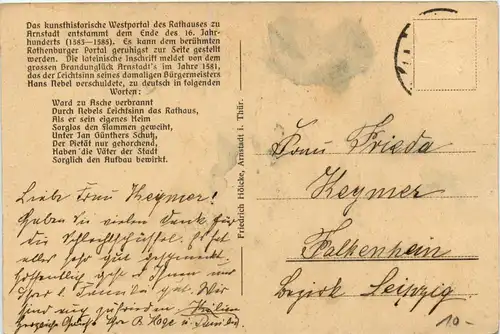 Das kunsthistorische Westportal des Rathauses zu
Arnstadt entstammt dem Ende des 16. Jahr-
hunderts (1583–1585). Es kann dem berühmten
Rothenburger Portal geruhigst zur Seite gestellt
werden. Die lateinische Inschrift meldet von dem
grossen Brandunglück Arnstadt's im Jahre 1581,
das der Leichtsinn seines damaligen Bürgermeisters
Hans Nebel verschuldete, zu deutsch in folgenden
Worten:
Ward zu Asche verbrannt
Durch Nebels Leichtsinn das Rathaus,
Als er sein eigenes Heim
Sorglos den Flammen geweiht,
Unter Jan Günthers Schutz,
Der Pietät nur gehorchend,
Haben die Väter der Stadt
Sorglich den Aufbau bewirkt.
Liebe Frau Keymer!
Haben Sie vielen Dank für
die Schlachtschüssel. Es hat
alles sehr gut geschmeckt.
Hoffentlich geht es Ihnen und
Ihrer l. Familie gut. Wir
sind
zufrieden
Ihre
Friedrich Hölcke, Arnstadt i. Thür.
Frau Frieda
Keymer
Falkenhein
Bezirk Leipzig
10-